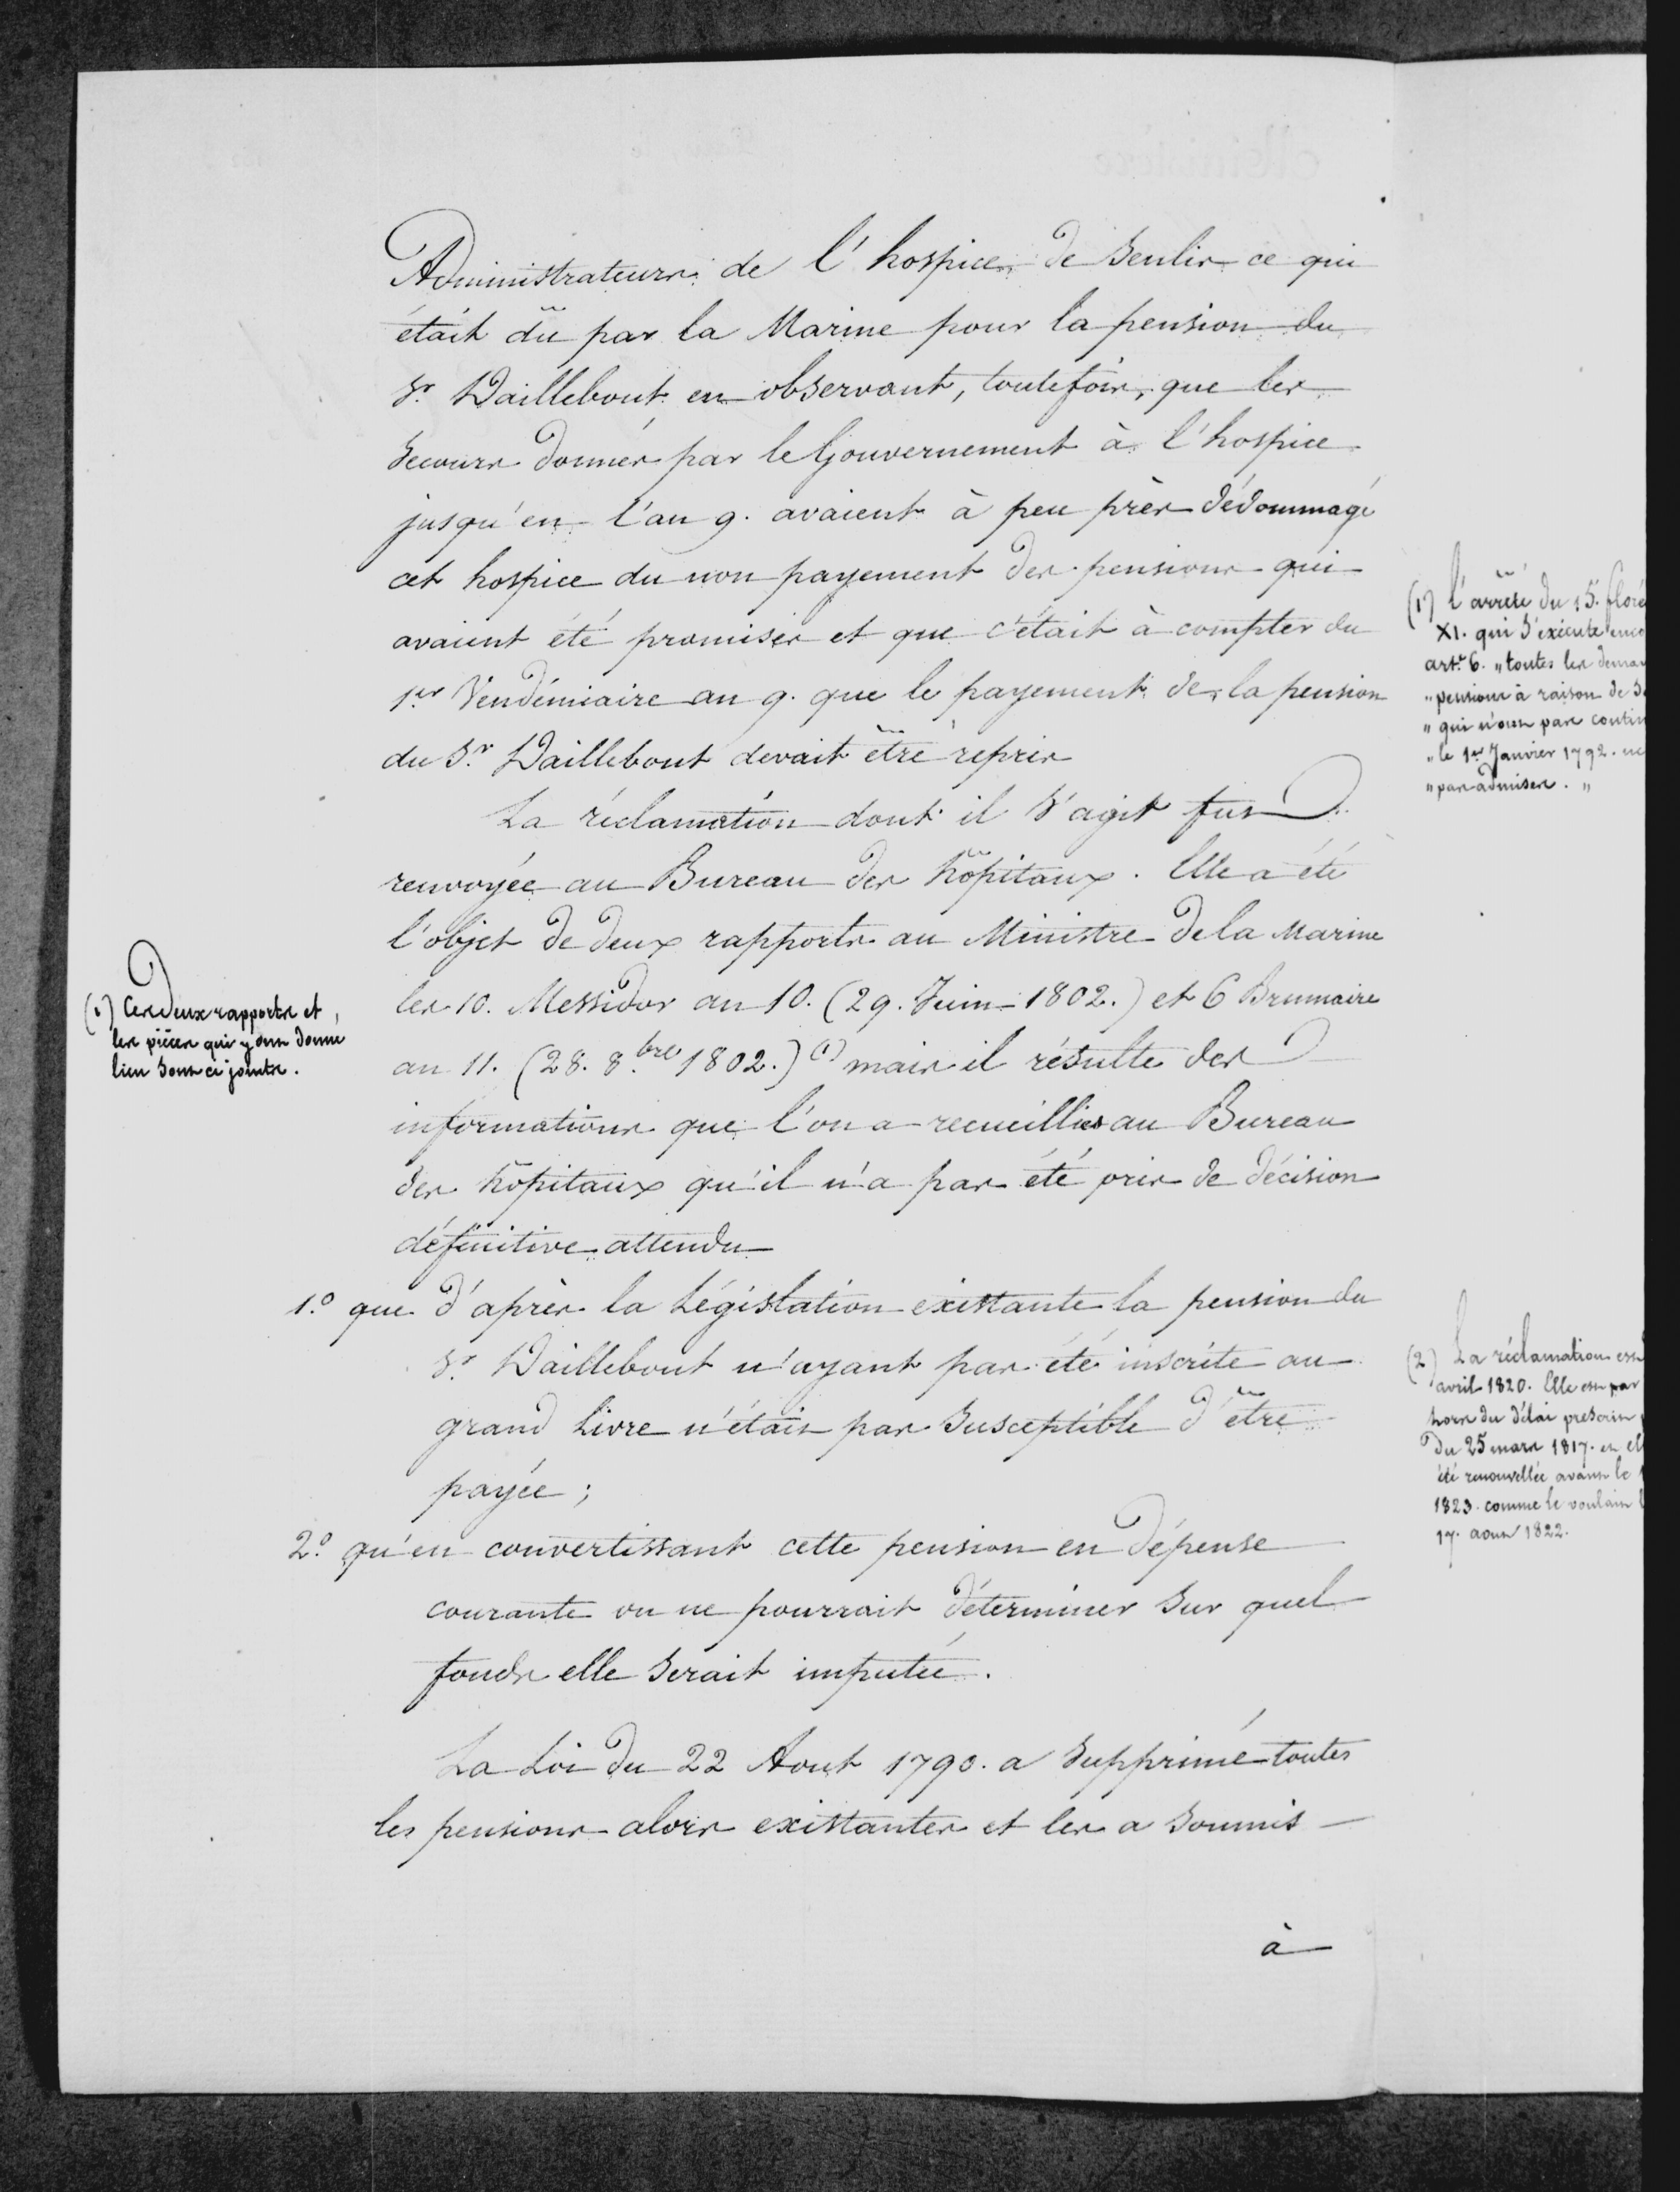 Administrateurs de l'hospice de Senlis ce qui
était dû par la Marine pour la pension du
Sr. Daillebout en observant, toutefois, que les
secours donnés par le Gouvernement à l'hospice
jusqu'en l'an 9. avaient à peu près dédommagé
cet hospice du non payement des pensions qui
avaient été promises et que c'était à compter du
1er Vendémiaire an 9. que le payement de la pension
du Sr. Daillebout devait être repris
La réclamation dont il s'agit fut
renvoyée au Bureau des hôpitaux. Elle a été
l'objet de deux rapports au Ministre de la Marine
les 10. Messidor an 10. (29. Juin 1802.) et 6 Brumaire
an 11. (28. 8.bre 1802.) (1) mais il résulte des
informations que l'on a recueillies au Bureau
des hôpitaux qu'il n'a pas été pris de décision
définitive attendu
1.º que d'après la Législation existante la pension du
Sr. Daillebout n'ayant pas été inscrite au
grand Livre n'était pas susceptible d'être
payée;
2.º qu'en convertissant cette pension en dépense
courante on ne pourrait déterminer sur quel
fonds elle serait imputée.
La Loi du 22 Aout 1790. a supprimé toutes
les pensions alors existantes et les a soumis
à
(1) Ces deux rapports et
les pièces qui y ont donné
lieu sont ci joints.
(1) L'arrêté du 15. floré
XI. qui s'exécute enco
art. 6. "toutes les deman
"pensions à raison de se
"qui n'ont pas contin
"le 1er Janvier 1792. ne
"pas admises."
(2) La réclamation est
avril 1820. Elle est par
hors du délai prescrit
du 25 mars 1817. et el
été renouvellée avant le
1823. comme le voulait l
17. aout 1822.